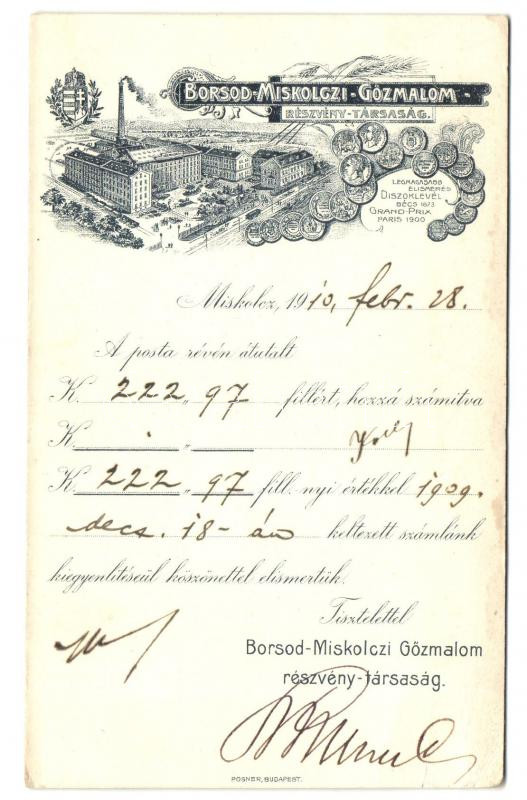 BORSOD-MISKOLCZI-GŐZMALOM
RÉSZVÉNY-TÁRSASÁG.
LEGMAGASABB
ELISMERÉS
DISZOKLEVÉL
BÉCS 1873
GRAND-PRIX
PARIS 1900
Miskolcz, 1910, febr. 28.
A posta révén átutalt
K 222 „ 97 fillért, hozzá számitva
K „
K 222 „ 97 fill. nyi értékkel 1909.
decz. 18-án keltezett számlánk
kiegyenlitéseül köszönettel elismertük.
Tisztelettel
Borsod-Miskolczi Gőzmalom
részvény-társaság.
POSNER, BUDAPEST.